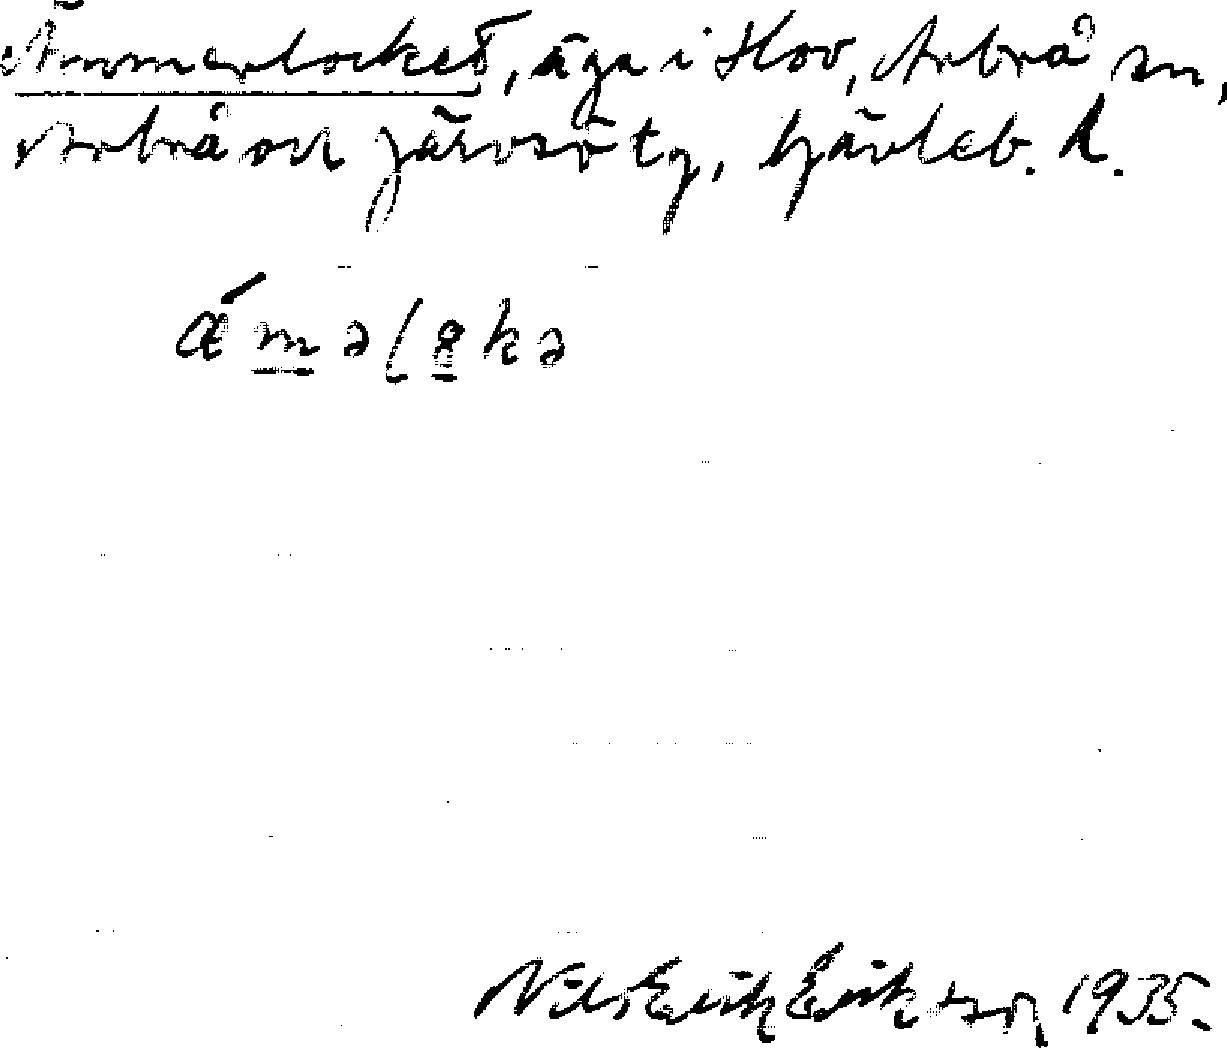 Ämmerlocket, äga i Hov, Arbrå sn,
Arbrå och Järvsö tg, Gävleb. l.
ä́məl
Nils Erik Eriksson 1935.